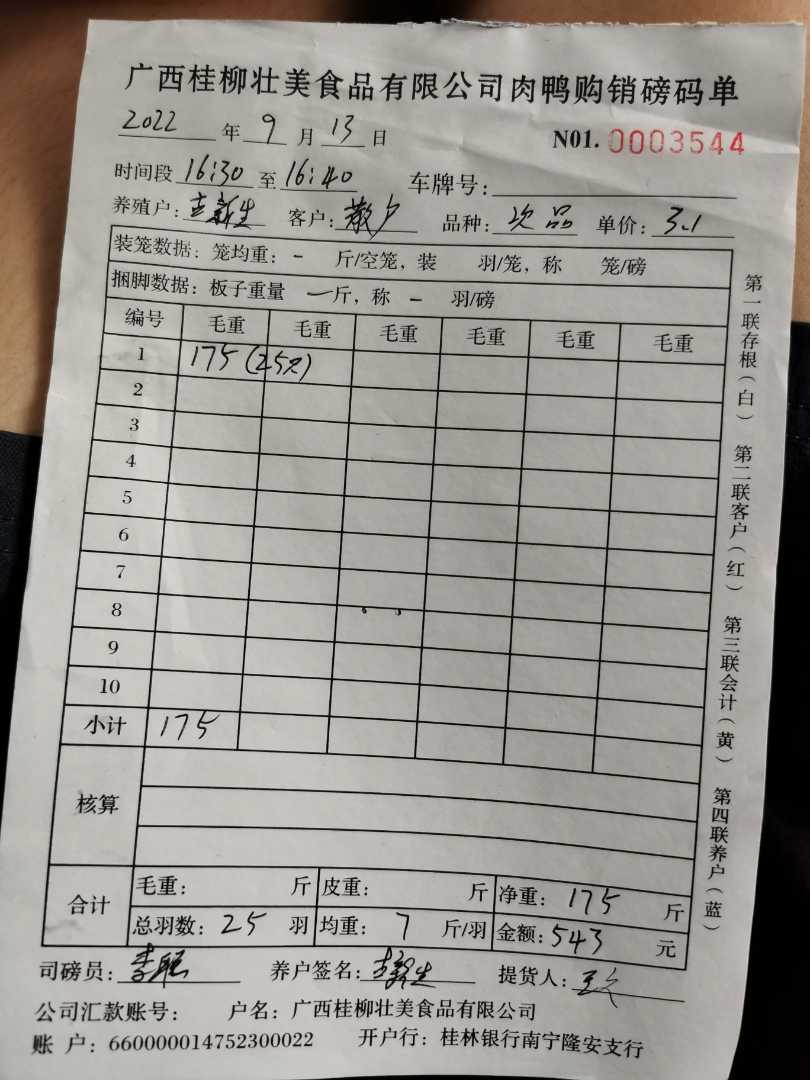 广西桂柳壮美食品有限公司肉鸭购销磅码单
2022 年 9 月 13 日 N01. 0003544
时间段 16:30 至 16:40 车牌号:
养殖户: 新生 客户: 散户 品种: 次品 单价: 3.1
装笼数据: 笼均重: - 斤/空笼, 装 羽/笼, 称 笼/磅
捆脚数据: 板子重量 一斤, 称 - 羽/磅
编号 毛重 毛重 毛重 毛重 毛重 毛重
1 175 (25只)
2
3
4
5
6
7
8
9
10
小计 175
核算
合计 毛重: 斤 皮重: 斤 净重: 175 斤
总羽数: 25 羽 均重: 7 斤/羽 金额: 543 元
司磅员: 李 养户签名: 新生 提货人:
公司汇款账号: 户名: 广西桂柳壮美食品有限公司
账 户: 660000014752300022 开户行: 桂林银行南宁隆安支行
第一联存根(白) 第二联客户(红) 第三联会计(黄) 第四联养户(蓝)